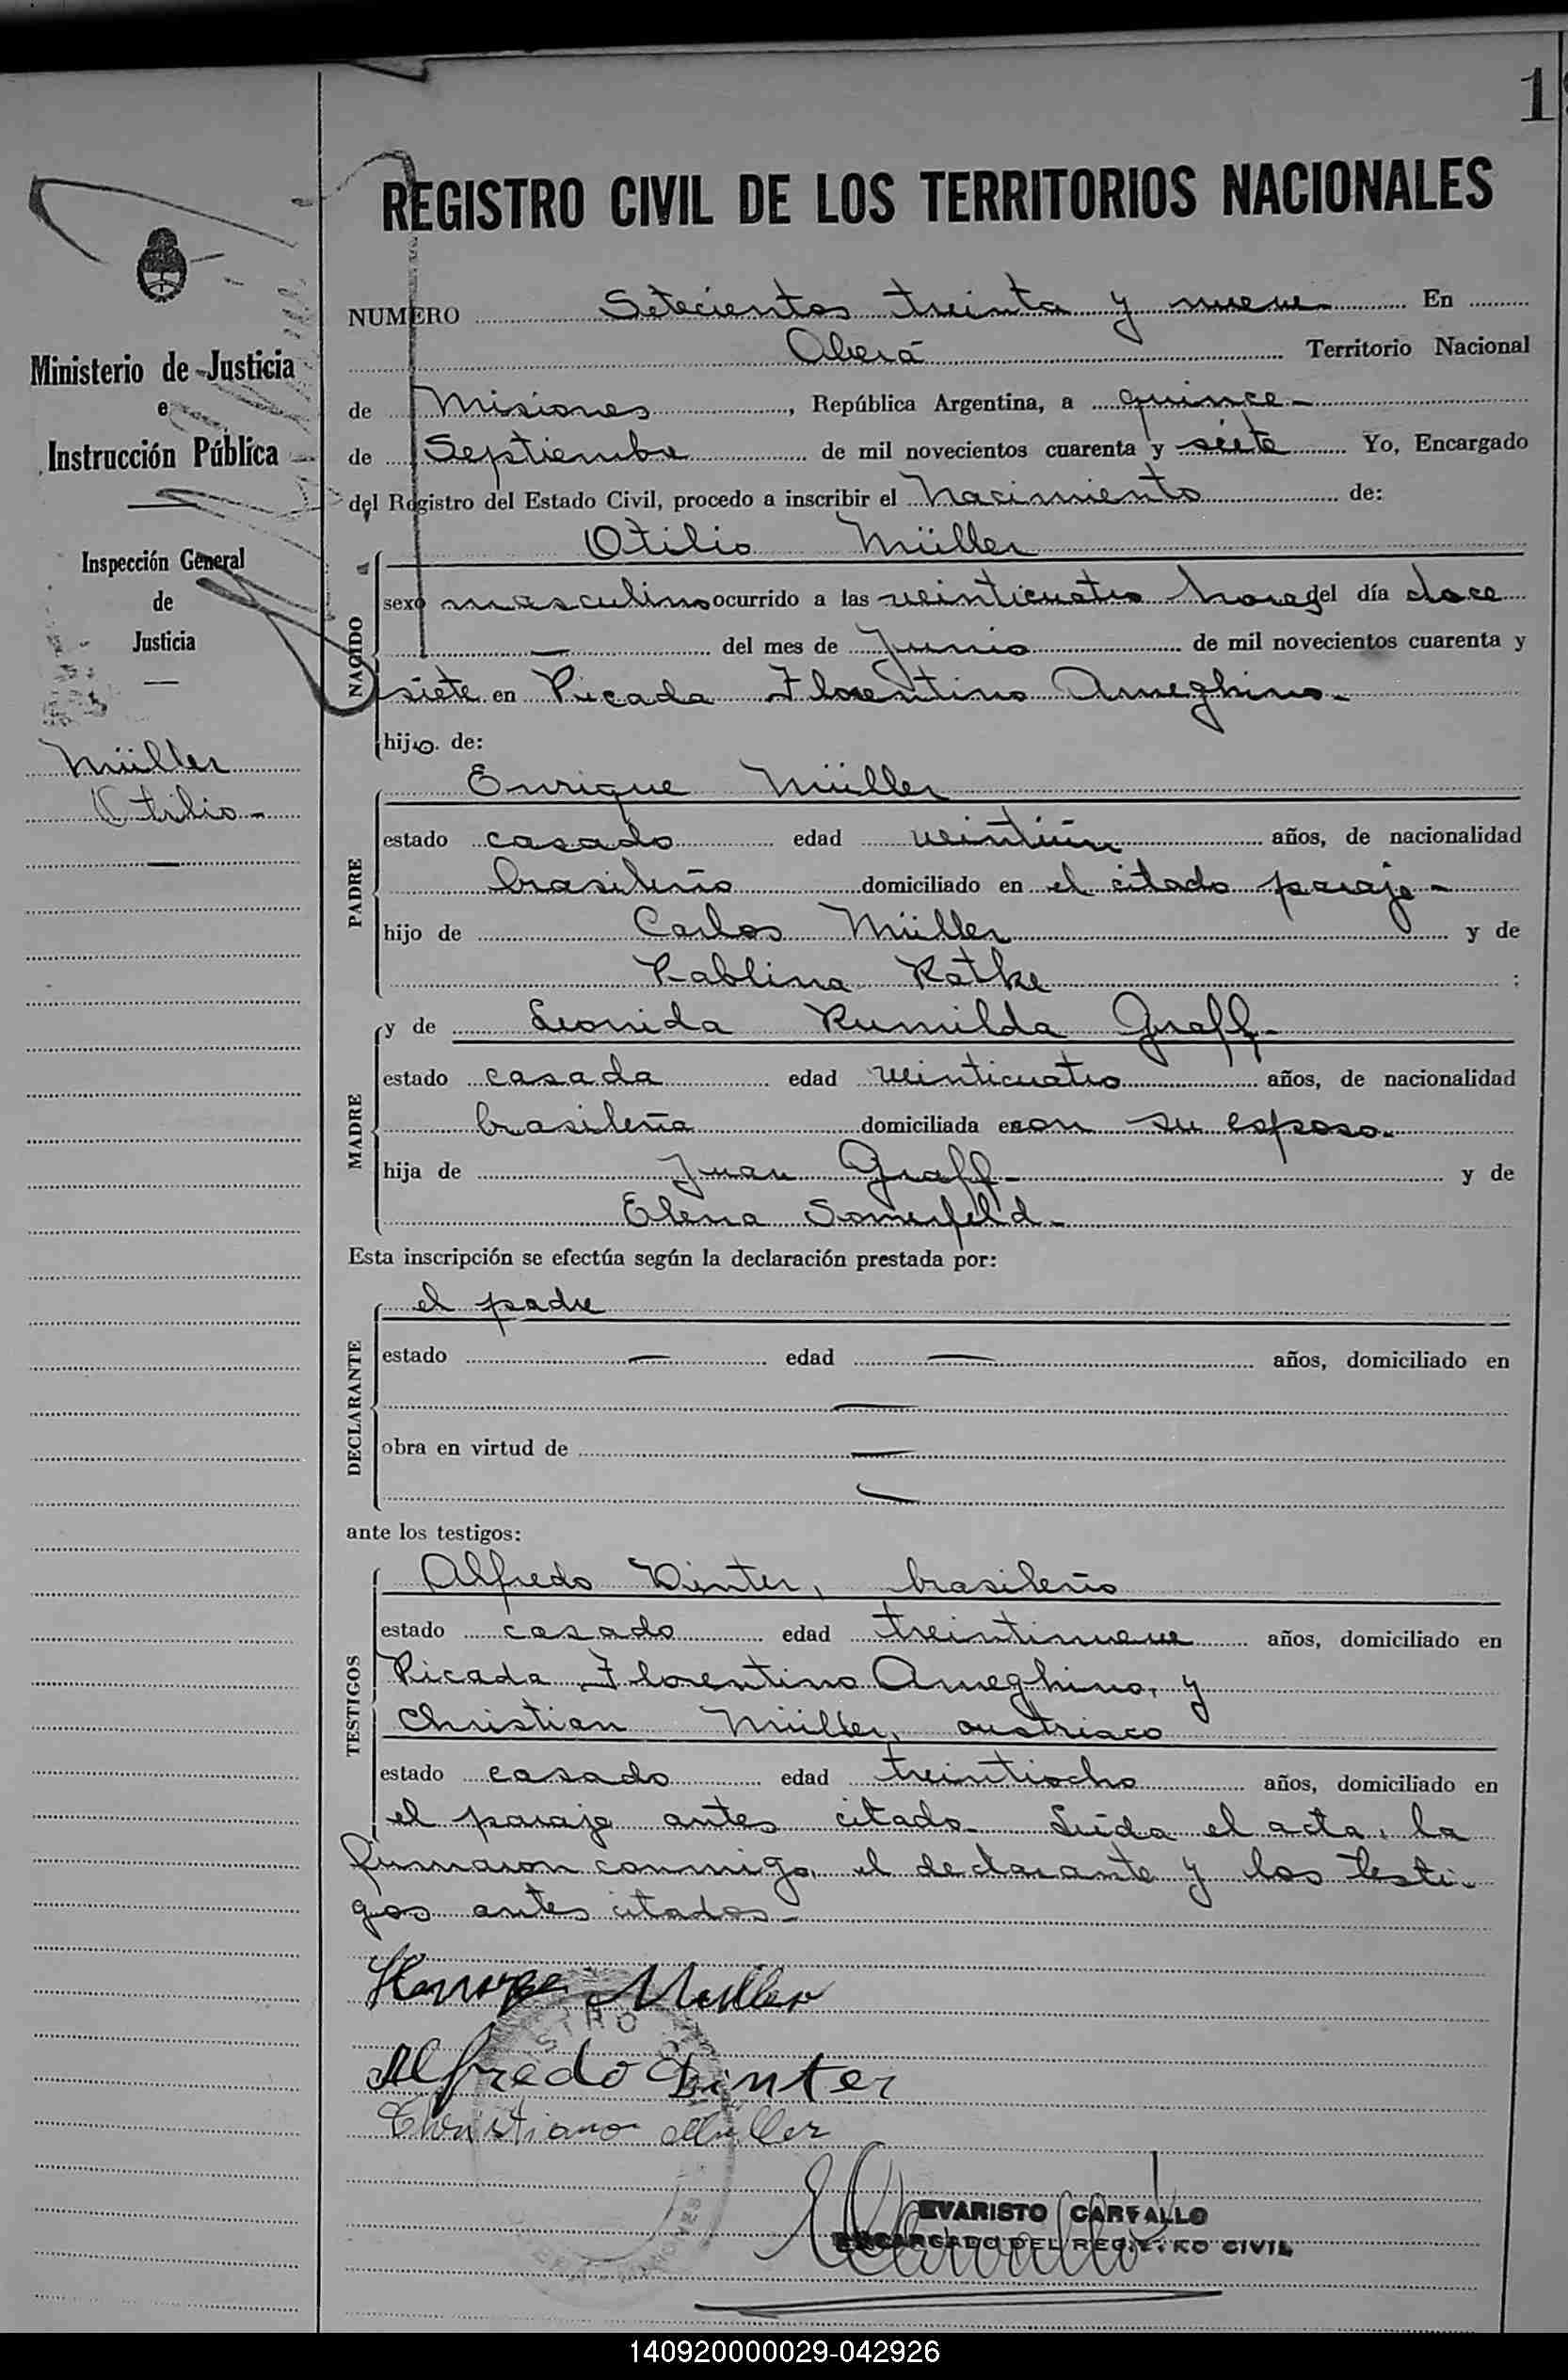 1
REGISTRO CIVIL DE LOS TERRITORIOS NACIONALES
Ministerio de Justicia
e
Instrucción Pública
Inspección General
de
Justicia
Müller
Otilio
NUMERO Setecientos treinta y nueve En
Oberá Territorio Nacional
de Misiones, República Argentina, a quince
de Septiembre de mil novecientos cuarenta y siete Yo, Encargado
del Registro del Estado Civil, procedo a inscribir el nacimiento de:
NACIDO
Otilio Müller
sexo masculino ocurrido a las veinticuatro horas del día doce
del mes de Junio de mil novecientos cuarenta y
siete en Picada Florentino Ameghino
hijo de:
PADRE
Enrique Müller
estado casado edad veintiún años, de nacionalidad
brasileño domiciliado en el citado paraje
hijo de Carlos Müller y de
Pablina Ratke ;
MADRE
y de Leonida Rumilda Graff
estado casada edad veinticuatro años, de nacionalidad
brasileña domiciliada con su esposo
hija de Juan Graff y de
Elena Somerfeld
Esta inscripción se efectúa según la declaración prestada por:
DECLARANTE
el padre
estado edad años, domiciliado en
obra en virtud de
ante los testigos:
TESTIGOS
Alfredo Dinter, brasileño
estado casado edad treintinueve años, domiciliado en
Picada Florentino Ameghino, y
Christian Müller, austriaco
estado casado edad treintiocho años, domiciliado en
el paraje antes citado. Leída el acta, la
firmaron conmigo, el declarante y los testi-
gos antes citados
Müller
Alfredo Dinter
Christiano Müller
EVARISTO CARVALLO
ENCARGADO DEL REGISTRO CIVIL
140920000029-042926